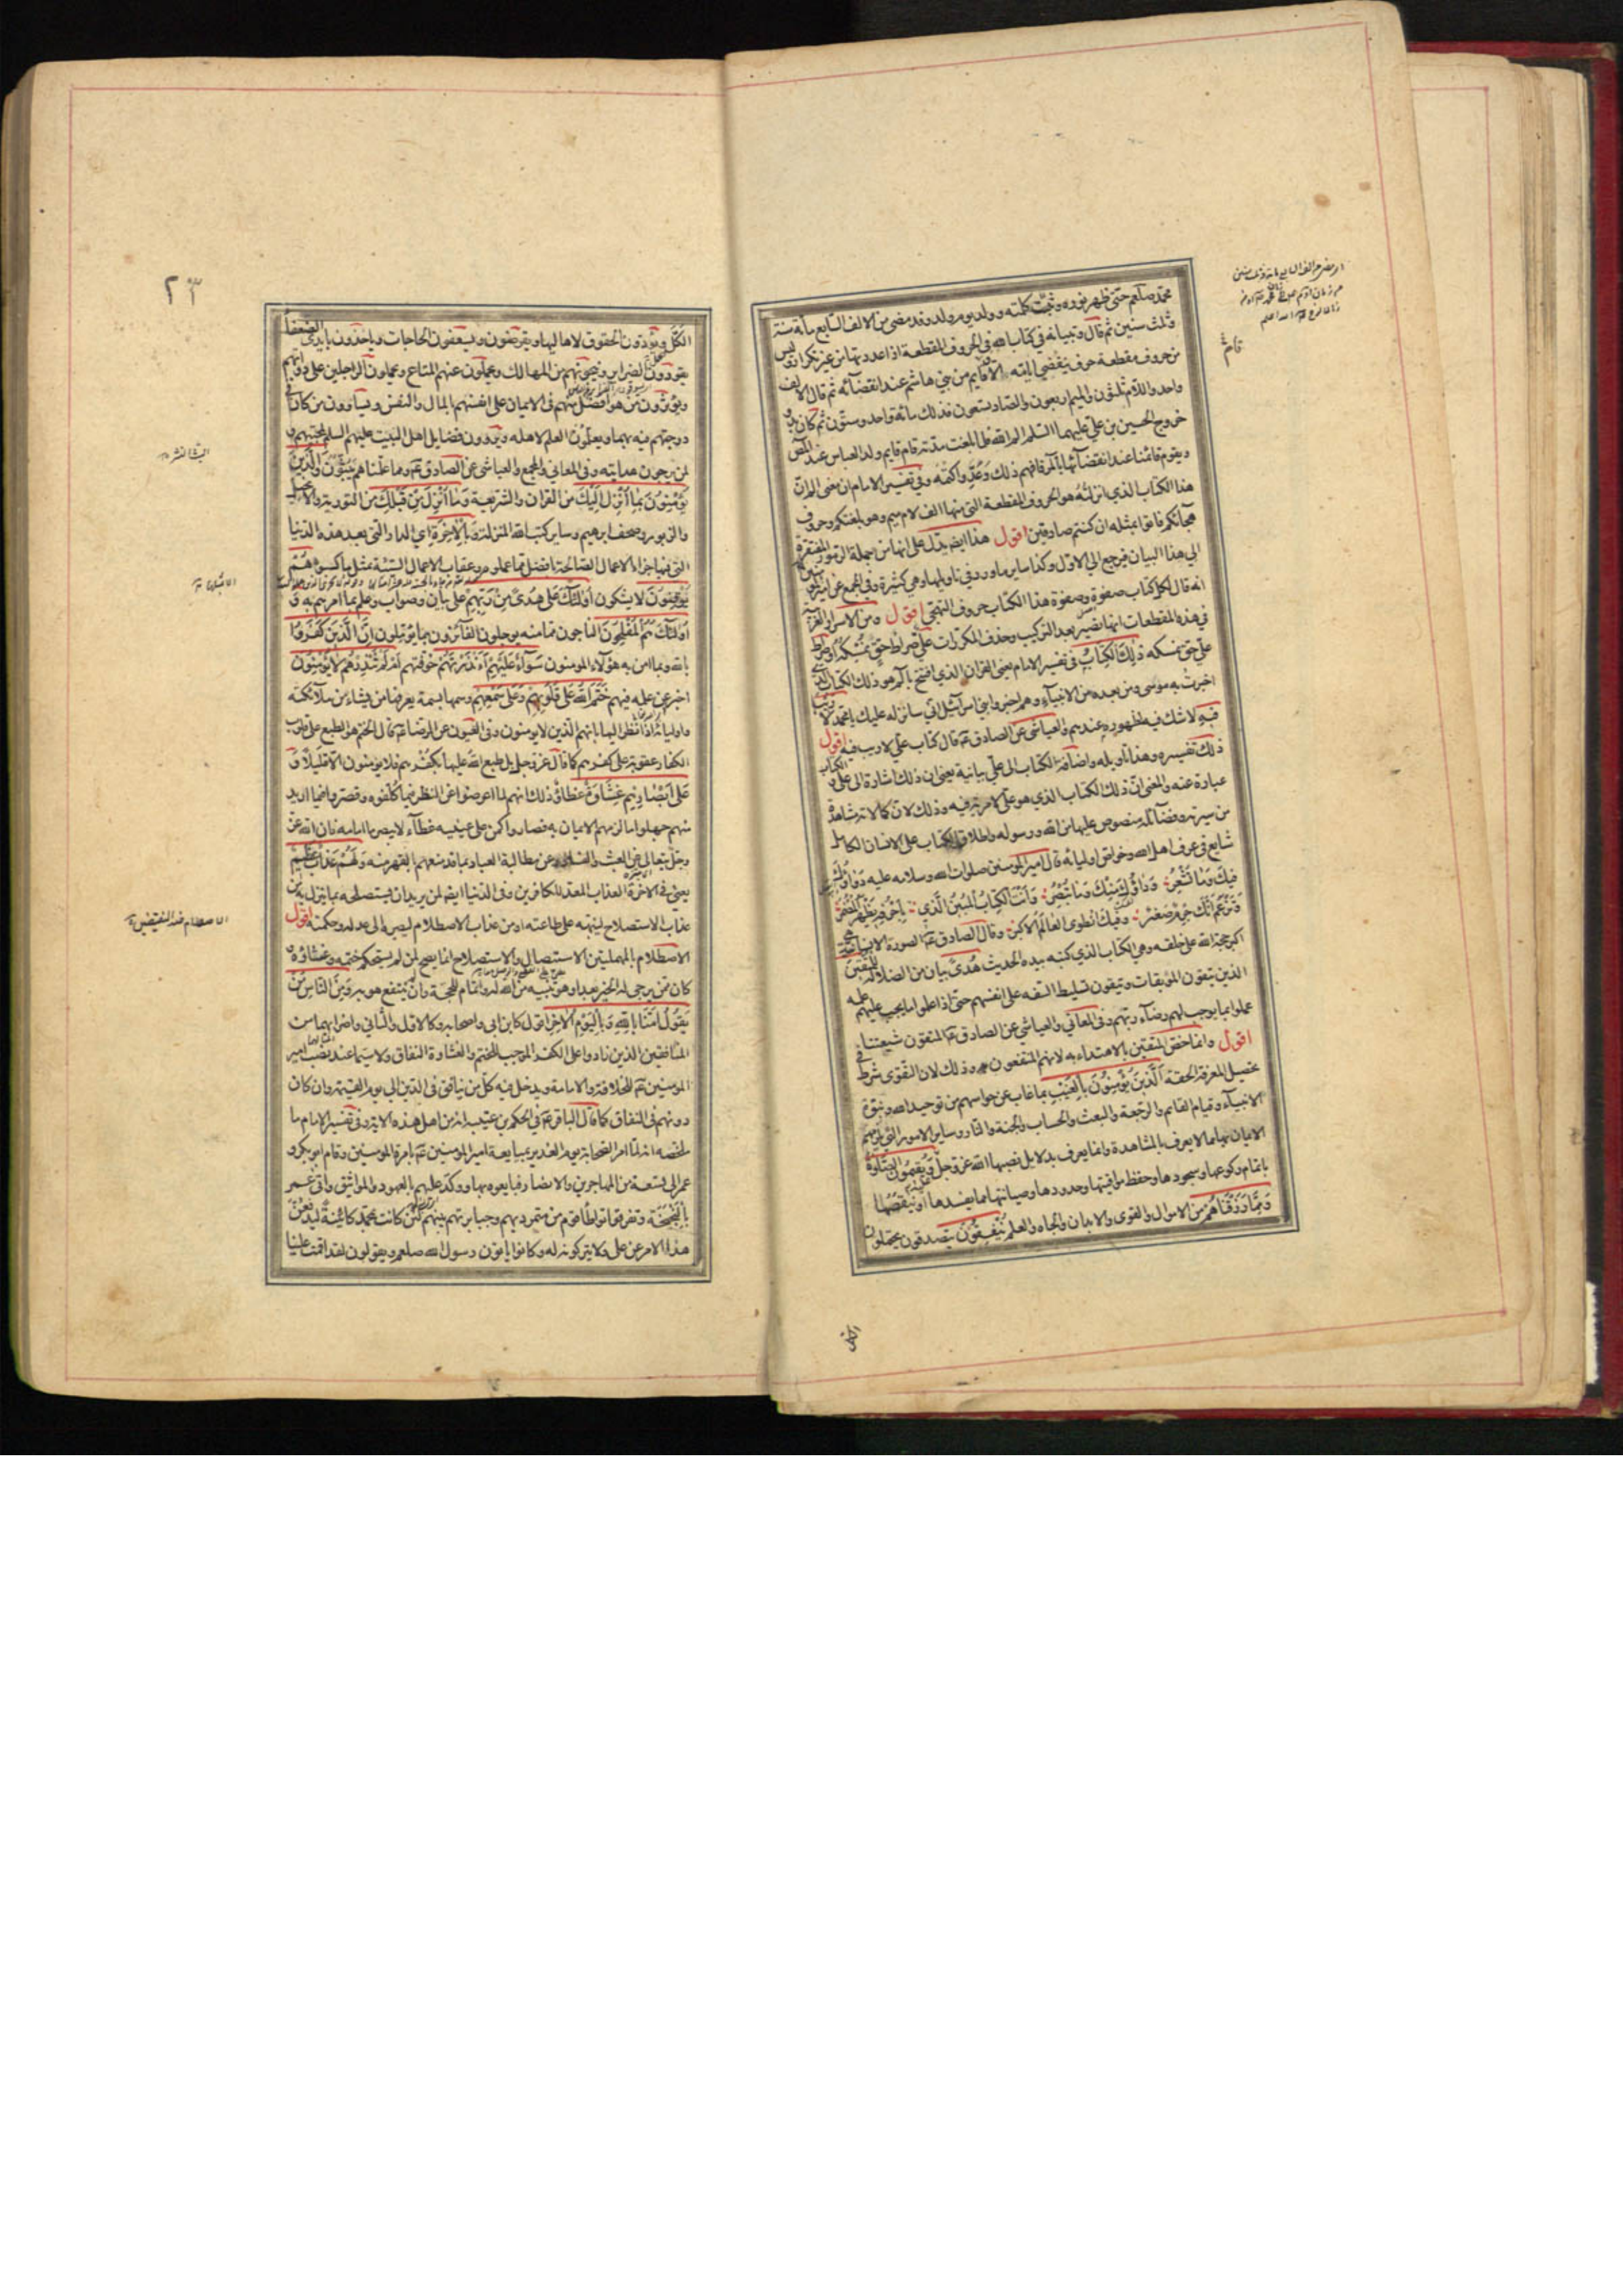 محمد صلعم حتى ظهر نوره وثبتت كلمته وولد يوم ولد وقد مضى من الالف السابع مأة سنة
وثلث سنين ثم قال وتبيانه في كتاب الله في الحروف المقطعة اذا عددتها من غير تكرار وليس
من حروف مقطعة حرف ينقضي ايامه الا وقايم من بني هاشم عند انقضائه ثم قال الالف
واحد واللام ثلثون والميم اربعون والصاد تسعون فذلك مائة واحد وستون ثم كان بدو
خروج الحسين بن علي عليهما السلم الم الله فلما بلغت مدته قام قايم ولد العباس عند المص
ويقوم قائمنا عند انقضائها بالر فافهم ذلك وعه واكتمه وفي تفسير الامام ان معنى الم ان
هذا الكتاب الذي انزلته هو الحروف المقطعة التي منها الف لام ميم وهو بلغتكم وحروف
هجائكم فاتوا بمثله ان كنتم صادقين اقول هذا ايضا يدل على انها من جملة الرموز المفتقرة
الى هذا البيان فيرجع الى الاول وكذا ساير ما ورد في تاويلها وهي كثيرة وفي المجمع عن امير المومنين
انه قال لكل كتاب صفوة وصفوة هذا الكتاب حروف التهجي اقول ومن الاسرار الغريبة
في هذه المقطعات انها تصير بعد التركيب وحذف المكررات علي صراط حق نمسكه او صراط
علي حق نمسكه ذلك الكتاب في تفسير الامام يعني القران الذي افتتح بالم هو ذلك الكتاب الذي
اخبرت به موسى ومن بعده من الانبياء وهم اخبروا بني اسرآئيل اني سانزله عليك يا محمد لا ريب
فيه لا شك فيه لظهوره عندهم والعياشي عن الصادق ع قال كتاب علي لا ريب فيه اقول
ذلك تفسيره وهذا تاويله واضافة الكتاب الى علي بيانية يعني ان ذلك اشارة الى علي والكتاب
عبارة عنه والمعنى ان ذلك الكتاب الذي هو علي لا مرية فيه وذلك لان كمالاته مشاهدة
من سيرته وفضآئله منصوص عليها من الله ورسوله واطلاق الكتاب على الانسان الكامل
شايع في عرف اهل الله وخواص اوليائه قال امير المومنين صلوات الله وسلامه عليه دواؤك
فيك وما تشعر وداؤك منك وما تبصر وانت الكتاب المبين الذي باحرفه يظهر المضمر
وتزعم انك جرم صغير وفيك انطوى العالم الاكبر وقال الصادق ع الصورة الانسانية هي
اكبر حجة الله على خلقه وهي الكتاب الذي كتبه بيده الحديث هدى بيان من الضلالة للمتقين
الذين يتقون الموبقات ويتقون تسليط السفه على انفسهم حتى اذا علموا ما يجب عليهم علمه
عملوا بما يوجب لهم رضآء ربهم وفي المعاني والعياشي عن الصادق ع المتقون شيعتنا
اقول وانما خص المتقين بالاهتداء به لانهم المنتفعون به وذلك لان التقوى شرط في
تحصيل المعرفة الحقة الذين يؤمنون بالغيب بما غاب عن حواسهم من توحيد الله ونبوة
الانبيآء وقيام القائم والرجعة والبعث والحساب والجنة والنار وساير الامور التي يلزمهم
الايمان بها مما لا يعرف بالمشاهدة وانما يعرف بدلايل نصبها الله عز وجل ويقيمون الصلوة
باتمام ركوعها وسجودها وحفظ مواقيتها وحدودها وصيانتها مما يفسدها او ينقصها
ومما رزقناهم من الاموال والقوى والابدان والجاه والعلم ينفقون يتصدقون يحتملون
الكل
٢٣
الكل ويؤدون الحقوق لاهاليها ويقرضون ويسعفون الحاجات وياخذون بايدي الضعفآ
يقودون الضراير وينجونهم من المهالك ويحملون عنهم المتاع ويحملون الراجلين على دوابهم
ويؤثرون من هو افضل منهم في الايمان على انفسهم بالمال والنفس ويساوون من كان في
درجتهم فيه بهما ويعلمون العلم لاهله ويروون فضايل اهل البيت عليهم السلم لمحبيهم و
لمن يرجون هدايته وفي المعاني والمجمع والعياشي عن الصادق ع ومما علمناهم يبثون والذين
يؤمنون بما انزل اليك من القران والشريعة وما انزل من قبلك من التورية والانجيل
والزبور وصحف ابرهيم وساير كتب الله المنزلة وبالاخرة اي الدار التي بعد هذه الدنيا
التي فيها جزاء الاعمال الصالحة بافضل مما عملوه وعقاب الاعمال السيئة بمثل ما كسبوه هم
يوقنون لا يشكون اولئك على هدى من ربهم على بيان وصواب وعلم بما امرهم به و
اولئك هم المفلحون الناجون مما منه يوجلون الفائزون بما يؤملون ان الذين كفروا
بالله وبما امن به هؤلاء المومنون سوآء عليهم ءانذرتهم خوفتهم ام لم تنذرهم لا يؤمنون
اخبر عن علمه فيهم ختم الله على قلوبهم وعلى سمعهم وسمها بسمة يعرفها من يشاء من ملائكته
واوليائه اذا نظر اليها بانهم الذين لا يومنون وفي العيون عن الرضا ع قال الختم هو الطبع على قلوب
الكفار عقوبة على كفرهم كما قال عز وجل بل طبع الله عليها بكفرهم فلا يومنون الا قليلا و
على ابصارهم غشاوة غطاء وذلك انهم لما اعرضوا عن النظر فيما كلفوه وقصروا فيما اريد
منهم جهلوا ما لزمهم الايمان به فصاروا كمن على عينيه غطآء لا يبصر ما امامه فان الله عز
وجل يتعالى عن العبث والفساد وعن مطالبة العباد بما قد منعهم بالقهر منه ولهم عذاب عظيم
يعني في الاخرة العذاب المعد للكافرين وفي الدنيا ايضا لمن يريد ان يستصلحه بما ينزل به من
عذاب الاستصلاح لينبهه على طاعته او من عذاب الاصطلام ليصيره الى عدله وحكمته اقول
الاصطلام بالمهملتين الاستيصال والاستصلاح انما يصح لمن لم يستحكم ختمه وغشاوته و
كان ممن يرجى له الخير بعد او هو تنبيه من الله له واتمام للحجة وان لم ينتفع هو به ومن الناس من
يقول امنا بالله وباليوم الاخر اقول كابن ابي واصحابه وكالاول والثاني واضرابهما من
المنافقين الذين زادوا على الكفر الموجب للختم والغشاوة النفاق ولا سيما عند نصب امير
المومنين ع للخلافة والامامة ويدخل فيه كل من ينافق في الدين الى يوم القيمة وان كان
دونهم في النفاق كما قال الباقر ع في الحكم بن عتيبة انه من اهل هذه الاية وفي تفسير الامام ما
ملخصه انه لما امر الصحابة يوم الغدير بمبايعة امير المومنين ع بامرة المومنين وقام ابو بكر و
عمر الى تسعة من المهاجرين والانصار فبايعوه بها ووكد عليهم بالعهود والمواثيق واتى عمر
بالبخبخة وتفرقوا تواطأ قوم من متمرديهم وجبابرتهم بينهم لئن كانت بمحمد كائنة ليدفعن
هذا الامر عن علي ولا يتركونه له وكانوا ياتون رسول الله صلعم ويقولون لقد اقمت علينا